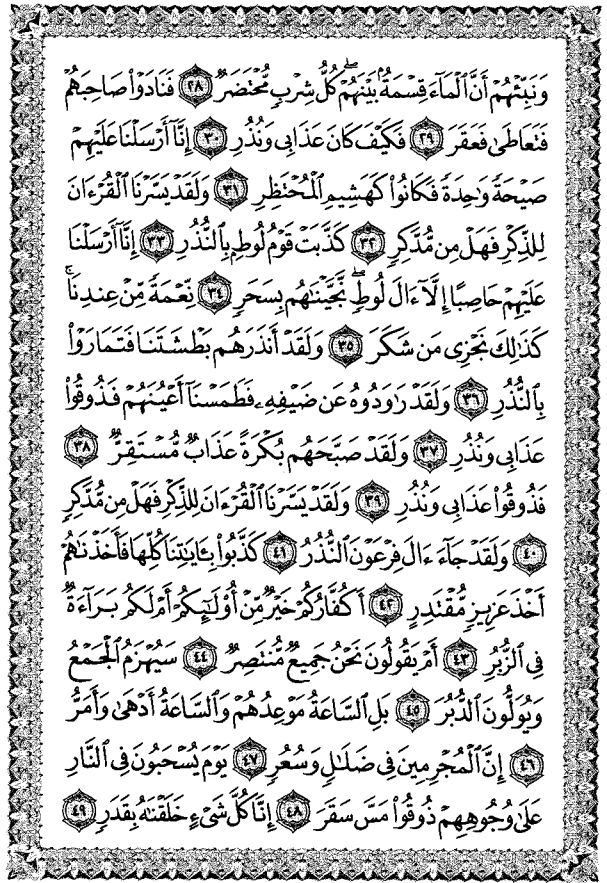 وَنَبِّئْهُمْ أَنَّ ٱلْمَآءَ قِسْمَةٌۢ بَيْنَهُمْ ۖ كُلُّ شِرْبٍ مُّحْتَضَرٌ ٢٨ فَنَادَوْا۟ صَاحِبَهُمْ
فَتَعَاطَىٰ فَعَقَرَ ٢٩ فَكَيْفَ كَانَ عَذَابِى وَنُذُرِ ٣٠ إِنَّآ أَرْسَلْنَا عَلَيْهِمْ
صَيْحَةً وَٰحِدَةً فَكَانُوا۟ كَهَشِيمِ ٱلْمُحْتَظِرِ ٣١ وَلَقَدْ يَسَّرْنَا ٱلْقُرْءَانَ
لِلذِّكْرِ فَهَلْ مِن مُّدَّكِرٍ ٣٢ كَذَّبَتْ قَوْمُ لُوطٍۭ بِٱلنُّذُرِ ٣٣ إِنَّآ أَرْسَلْنَا
عَلَيْهِمْ حَاصِبًا إِلَّآ ءَالَ لُوطٍ ۖ نَّجَّيْنَٰهُم بِسَحَرٍ ٣٤ نِّعْمَةً مِّنْ عِندِنَا ۚ
كَذَٰلِكَ نَجْزِى مَن شَكَرَ ٣٥ وَلَقَدْ أَنذَرَهُم بَطْشَتَنَا فَتَمَارَوْا۟
بِٱلنُّذُرِ ٣٦ وَلَقَدْ رَٰوَدُوهُ عَن ضَيْفِهِۦ فَطَمَسْنَآ أَعْيُنَهُمْ فَذُوقُوا۟
عَذَابِى وَنُذُرِ ٣٧ وَلَقَدْ صَبَّحَهُم بُكْرَةً عَذَابٌ مُّسْتَقِرٌّ ٣٨
فَذُوقُوا۟ عَذَابِى وَنُذُرِ ٣٩ وَلَقَدْ يَسَّرْنَا ٱلْقُرْءَانَ لِلذِّكْرِ فَهَلْ مِن مُّدَّكِرٍ
٤٠ وَلَقَدْ جَآءَ ءَالَ فِرْعَوْنَ ٱلنُّذُرُ ٤١ كَذَّبُوا۟ بِـَٔايَٰتِنَا كُلِّهَا فَأَخَذْنَٰهُمْ
أَخْذَ عَزِيزٍ مُّقْتَدِرٍ ٤٢ أَكُفَّارُكُمْ خَيْرٌ مِّنْ أُو۟لَٰٓئِكُمْ أَمْ لَكُم بَرَآءَةٌ
فِى ٱلزُّبُرِ ٤٣ أَمْ يَقُولُونَ نَحْنُ جَمِيعٌ مُّنتَصِرٌ ٤٤ سَيُهْزَمُ ٱلْجَمْعُ
وَيُوَلُّونَ ٱلدُّبُرَ ٤٥ بَلِ ٱلسَّاعَةُ مَوْعِدُهُمْ وَٱلسَّاعَةُ أَدْهَىٰ وَأَمَرُّ
٤٦ إِنَّ ٱلْمُجْرِمِينَ فِى ضَلَٰلٍ وَسُعُرٍ ٤٧ يَوْمَ يُسْحَبُونَ فِى ٱلنَّارِ
عَلَىٰ وُجُوهِهِمْ ذُوقُوا۟ مَسَّ سَقَرَ ٤٨ إِنَّا كُلَّ شَىْءٍ خَلَقْنَٰهُ بِقَدَرٍ ٤٩